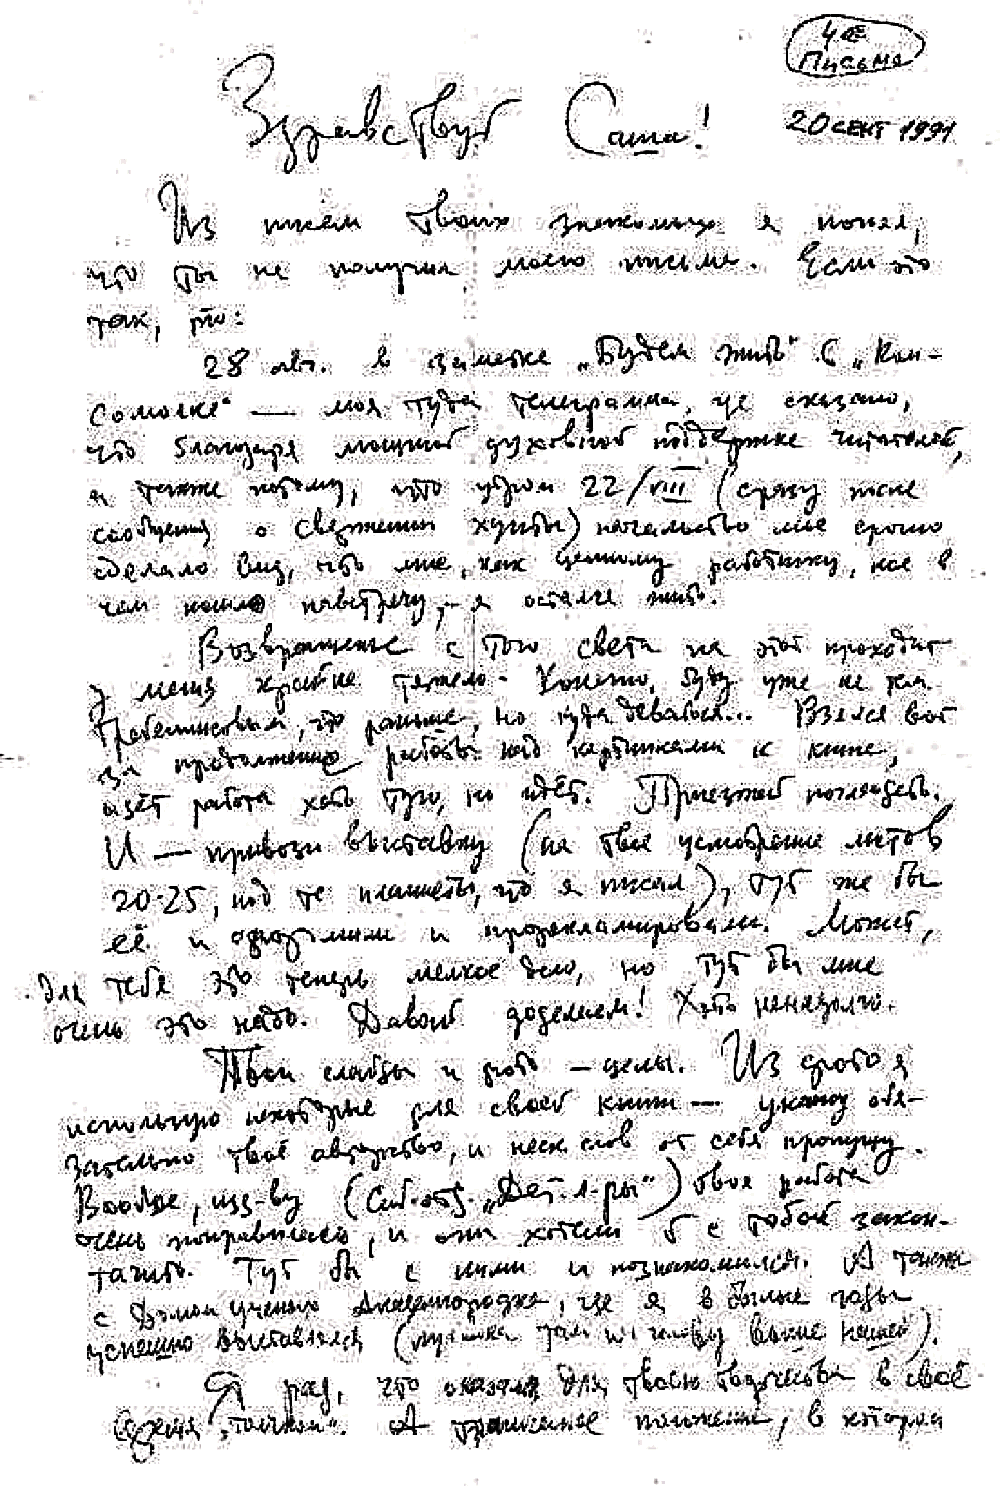 4ое
Письмо
20 сент 1991
Здравствуй Саша!
Из писем твоих знакомых я понял,
что ты не получил моего письма. Если это
так, то:
28 авг. в заметке „Будем жить" в „Ком-
сомолке" — моя туда телеграмма, где сказано,
что благодаря мощной духовной поддержке читателей,
а также потому, что утром 22/VIII (сразу после
сообщения о свержении хунты) начальство мне срочно
сделало вид, что мне, как ценному работнику, кое в
чем пошло навстречу, — я остался жить.
Возвращение с того света на этот проходит
у меня крайне тяжело. Конечно, буду уже не так
что раньше, но куда деваться... Взялся вот
за продолжение работы над картинками к книге,
идёт работа хоть туго, но идёт. Приезжай поглядеть.
И — привози выставку (на твоё усмотрение листов
20-25, под те планшеты, что я писал), тут же бы
её и и прорекламировали. Может,
для тебя это теперь мелкое дело, но тут бы мне
очень это надо. Давай доделаем! Хоть ненадолго.
Твои слайды и фото — целы. Из фото я
использую некоторые для своей книги — укажу обя-
зательно твоё авторство, и неск. слов от себя пропущу.
Вообще, изд-ву (Сиб. отд. „Дет. л-ры") твоя работа
очень понравилась, и они хотели б с тобой закон-
тачить. Тут бы с ними и познакомился. А также
с Домом учёных Академгородка, где я в былые годы
успешно выставлялся (публика там на голову выше нашей).
Я рад, что оказал для твоего творчества в своё
время „толчком". А положение, в котором